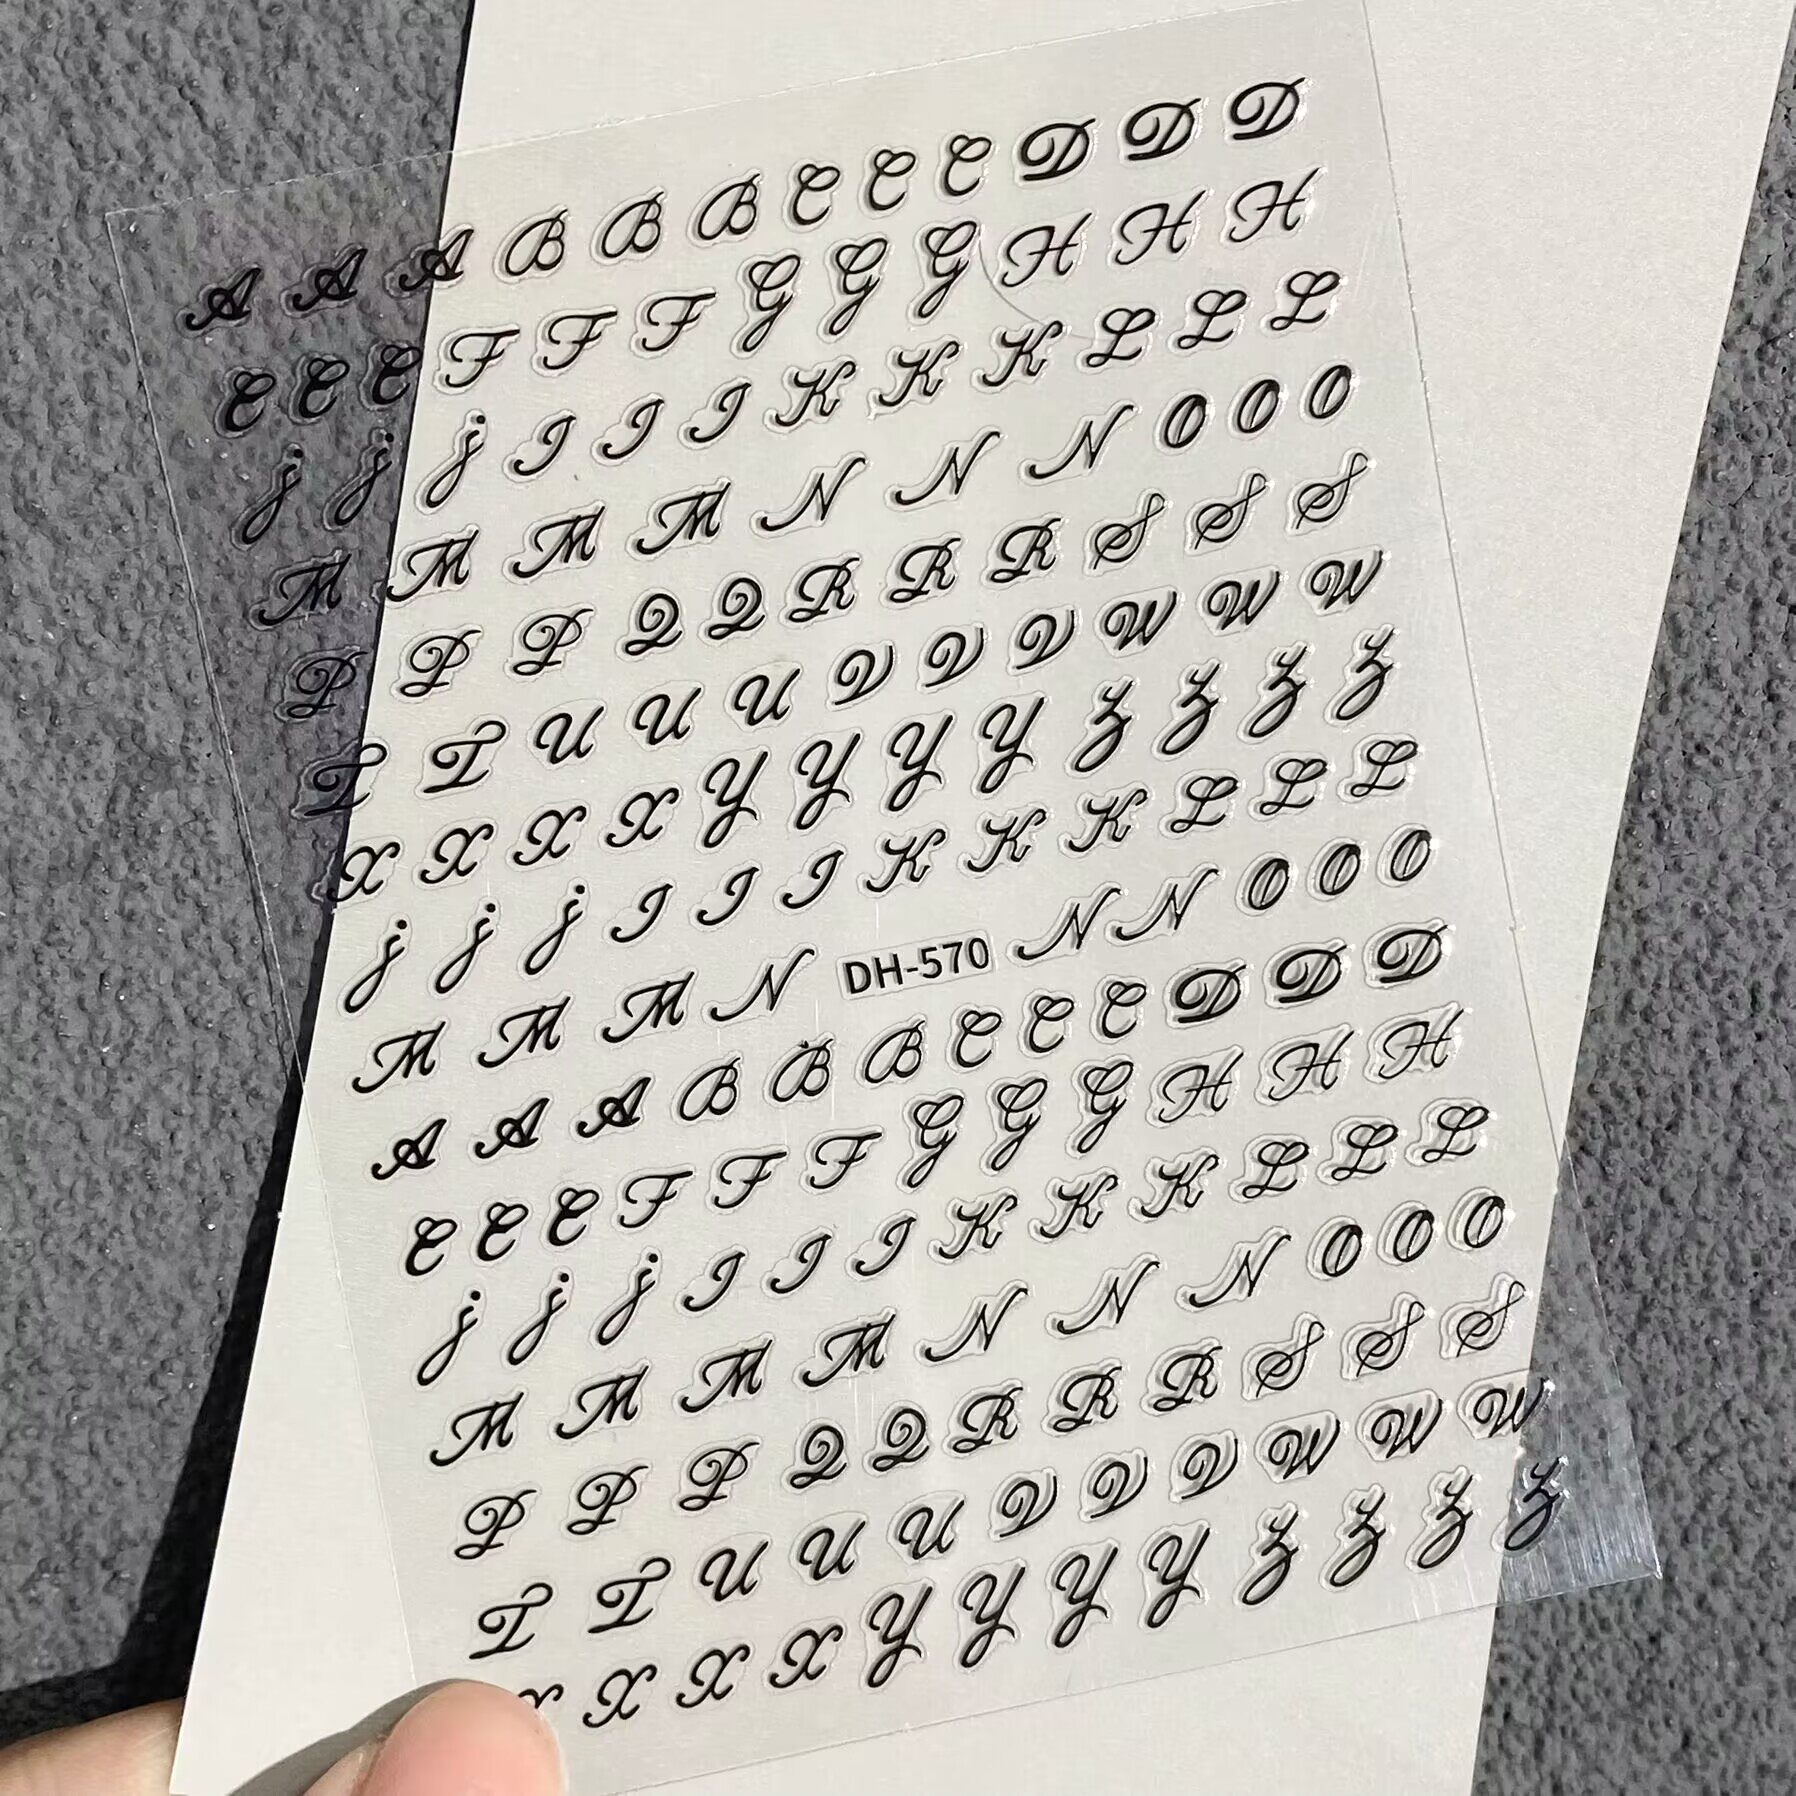 A A A B B B C C C D D D
E E E F F F G G G H H H
j j j I I I K K K L L L
M M M M N N N O O O
P P P Q Q R R R S S S
T T U U U V V V W W W
X X X X Y Y Y Y Z Z Z Z
j j j I I I K K K L L L
M M M N DH-570 N N O O O
A A A B B B C C C D D D
E E E F F F G G G H H H
j j j I I I K K K L L L
M M M M N N N O O O
P P P Q Q R R R S S S
T T U U U V V V W W W
X X X X Y Y Y Y Z Z Z Z